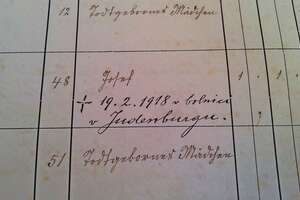 12 Todtgebornes Mädchen
48 Josef 1 . 1 .
+ 19.2.1918 v bolnici
v Judenburgu.
51 Todtgebornes Mädchen